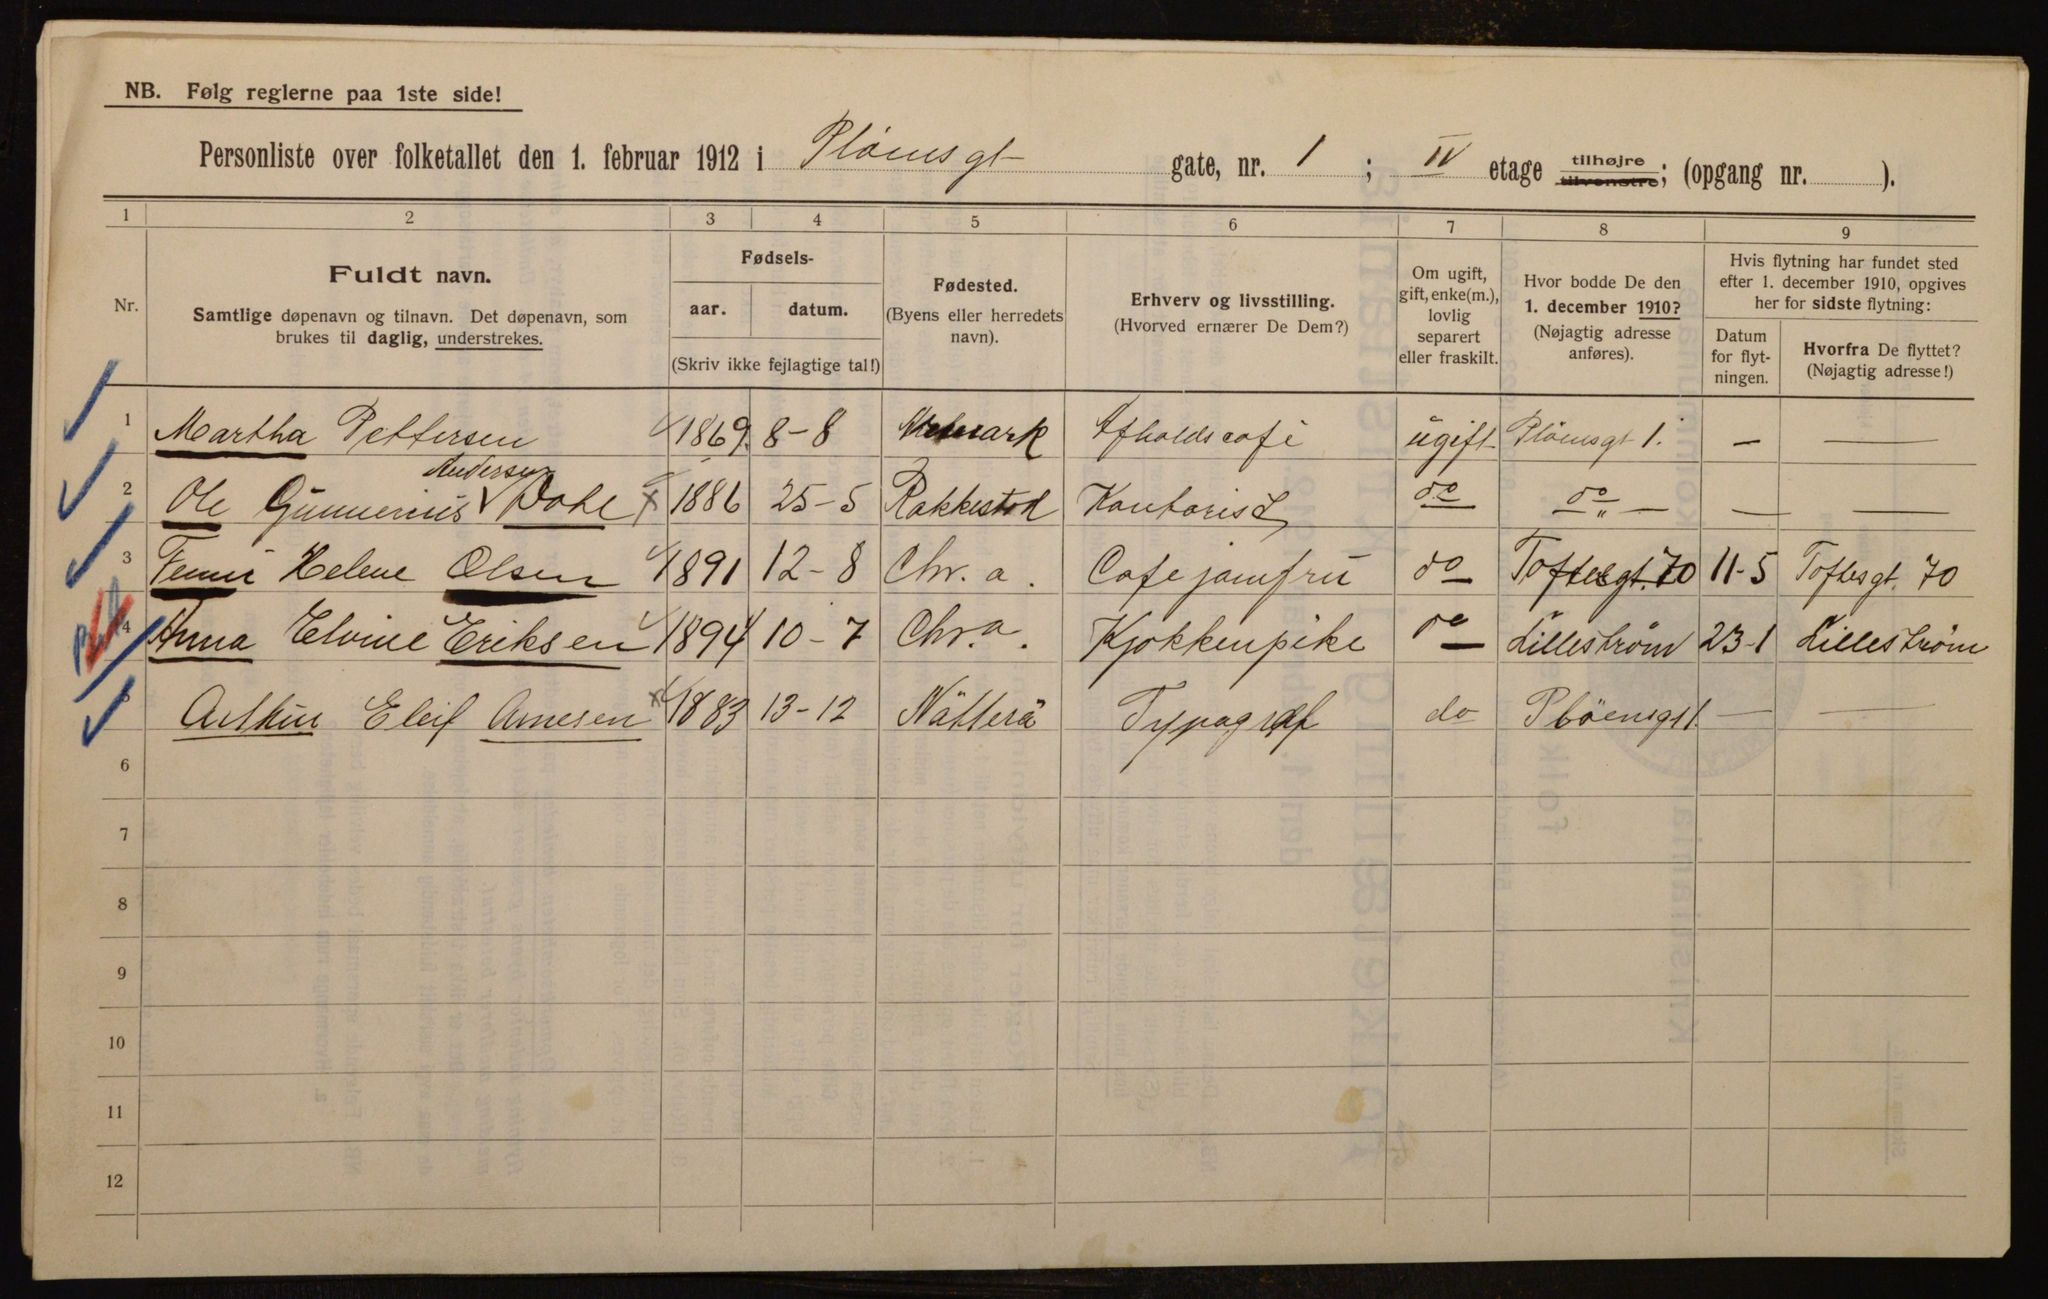 NB. Følg reglerne paa 1ste side!
Personliste over folketallet den 1. februar 1912 i Plöensgt gate, nr. 1 ; IV etage tilhøjre tilvenstre; (opgang nr. ).
1 2 3 4 5 6 7 8 9
Nr.
Fuldt navn.
Samtlige døpenavn og tilnavn. Det døpenavn, som
brukes til daglig, understrekes.
Fødsels-
aar. datum.
(Skriv ikke fejlagtige tal!)
Fødested.
(Byens eller herredets
navn).
Erhverv og livsstilling.
(Hvorved ernærer De Dem?)
Om ugift,
gift, enke(m.),
lovlig
separert
eller fraskilt.
Hvor bodde De den
1. december 1910?
(Nøjagtig adresse
anføres).
Hvis flytning har fundet sted
efter 1. december 1910, opgives
her for sidste flytning:
Datum
for flyt-
ningen.
Hvorfra De flyttet?
(Nøjagtig adresse!)
1 Martha Pettersen 1869 8-8 Afholdscafé ugift Plöensgt 1. — —
Andersen
2 Ole Gunnerius Dahl x 1886 25-5 Rakkestad Kontorist do do „ — — —
3 Helene Olsen 1891 12-8 Chr.a. Cafejomfru do Toftesgt. 70 11-5 Toftesgt. 70
4 Anna Elvine Eriksen 1894 10-7 Chr.a. Kjøkkenpike do Lilleström 23-1 Lilleström
5 Arthur Eleif Arnesen x 1883 13-12 Nötterö Typograf do Plöensgt 1. — —
6
7
8
9
10
11
12